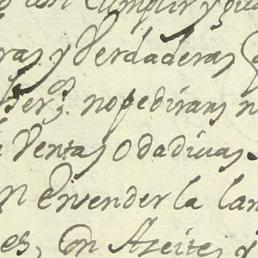 con cumplir y
ras y Verdaderas
no pediran n
Ventas O dadiuas
en Vender la lan
es, con Azeites y